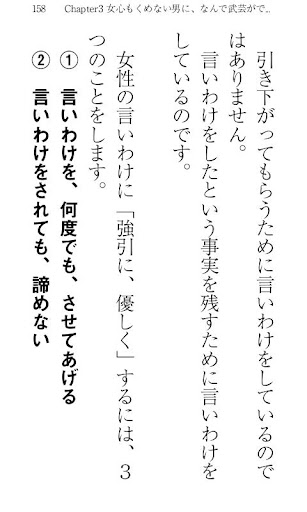 158 Chapter3 女心もくめない男に、なんで武芸がで...
引き下がってもらうために言いわけをしているので
はありません。
言いわけをしたという事実を残すために言いわけを
しているのです。
女性の言いわけに「強引に、優しく」するには、３
つのことをします。
① 言いわけを、何度でも、させてあげる
② 言いわけをされても、諦めない